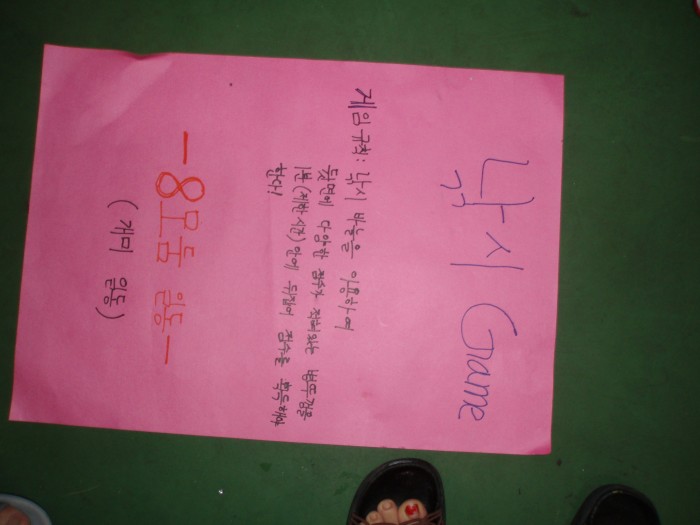 낚시 Game
게임규칙: 낚시 바늘을 이용하여
뒷면에 다양한 점수가 적혀있는 병뚜껑을
1분(제한시간)안에 뒤집어 점수를 획득해야
한다!
-8모둠 일동-
(개미 일동)